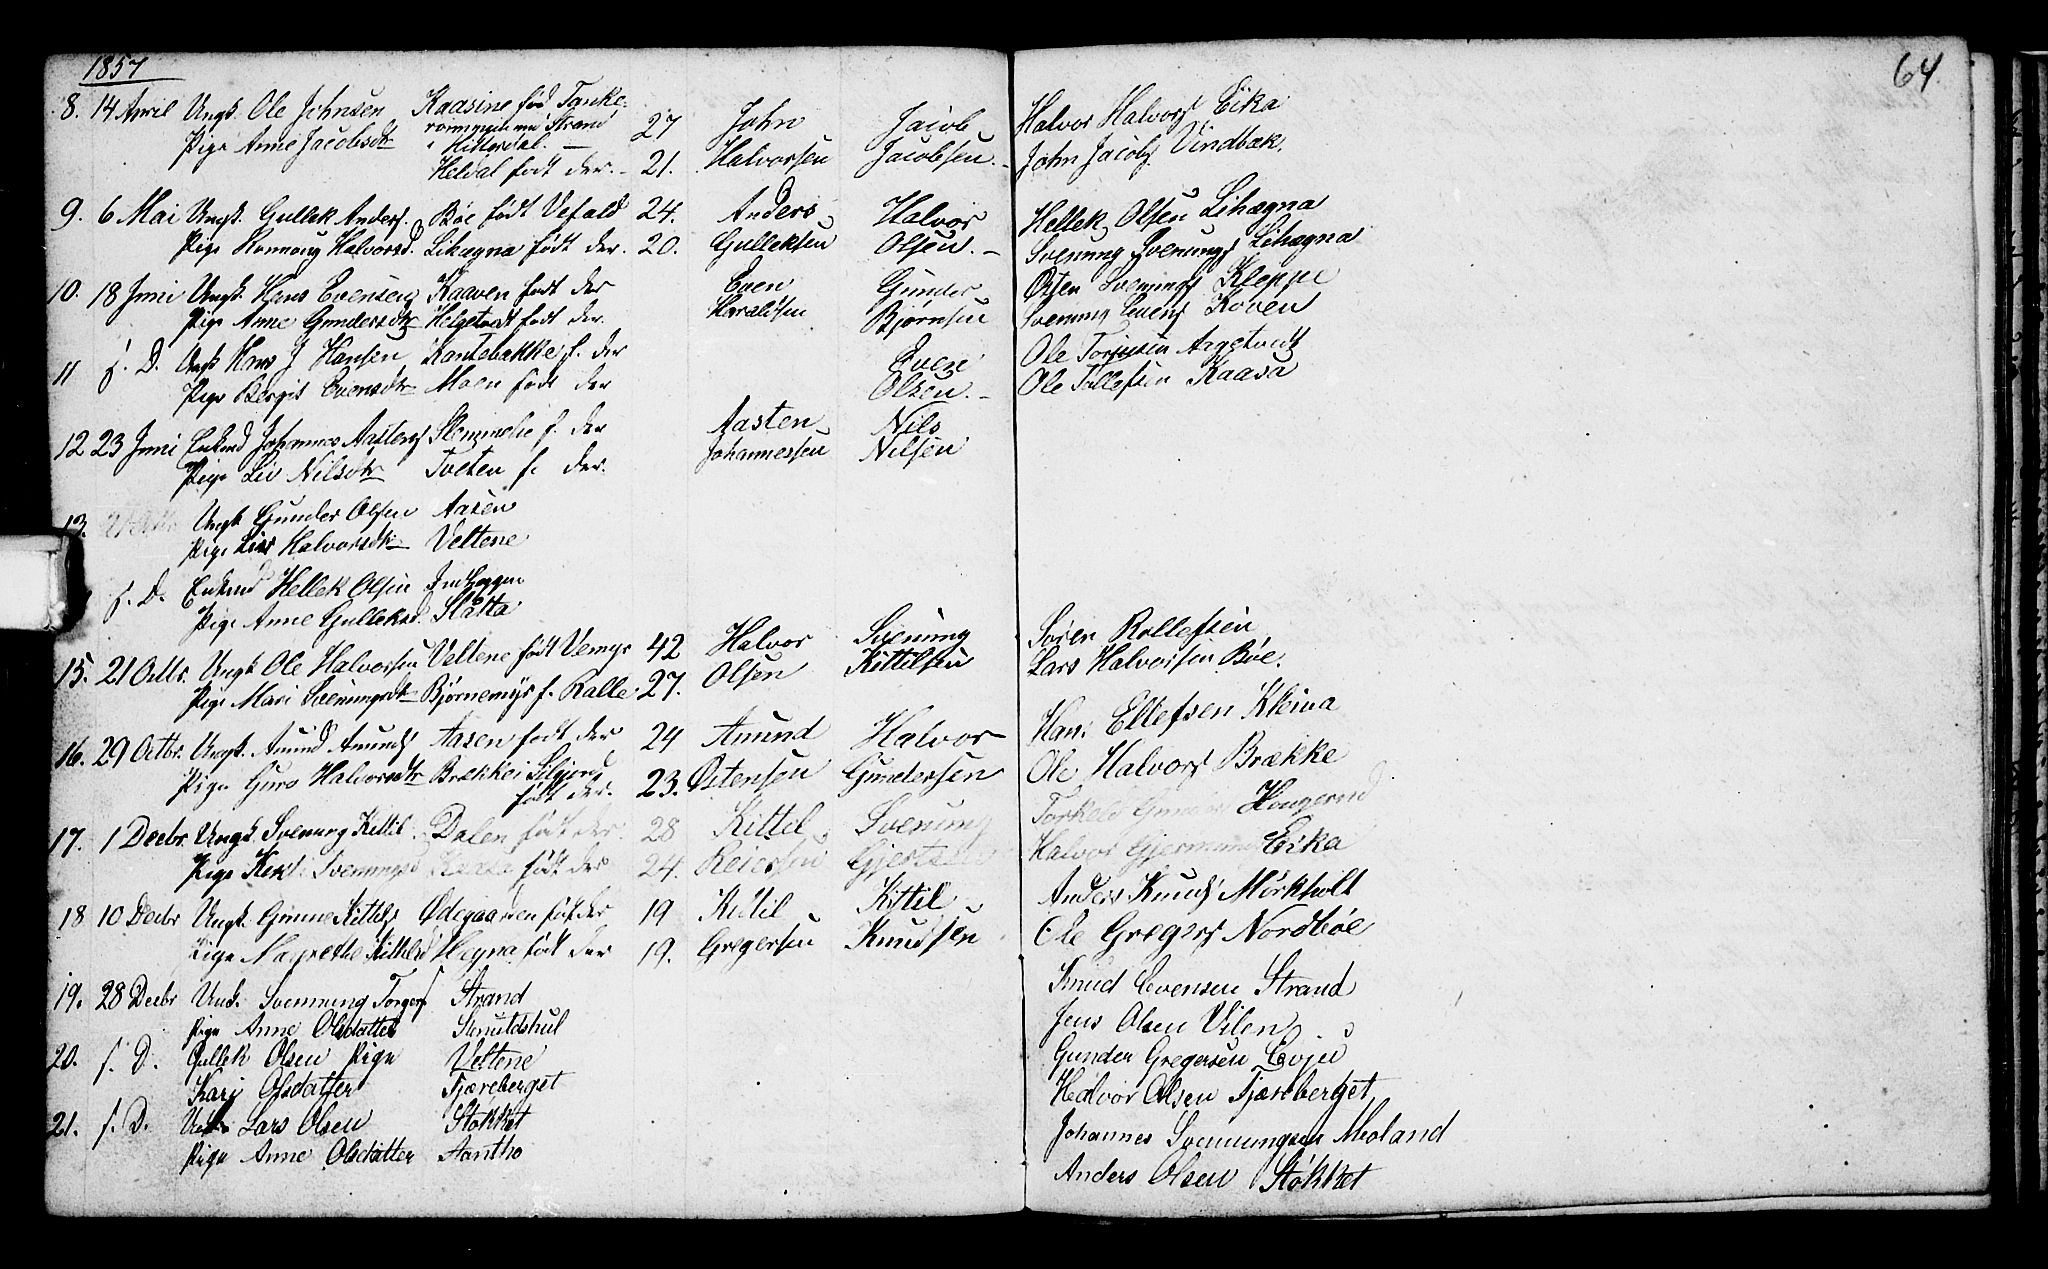 1857
64
8. 14 April Ungk. Ole Johnsen Kaasine fød Tanke-
rommen Strand 27 John Jacob Halvor Halvors Eika
Pige Anne Jacobsdtr i Hitterdal. —
Heldal født der. - 21. Halvorsen Jacobsen. - John Jacobs Vindbæk.
9. 6 Mai Ungk. Gullek Anders. Bøe født Vefald 24. Anders Halvor Hellek Olsen Lihægna
Pige Halvorsd. Lihagna født der. 20. Gulleksen Olsen. - Svenung Svenungs Lihægna
10. 18 Juni Ungk. Hans Evensen Kaaven født der Even Gunder Østen Svenungs Kleppe
Pige Anne Gundersdtr Helgetvedt født der. Haraldsen Bjørnsen Svenung Evens Koven
11 s. D. Ungk Hans J Hansen Kantebække f. der Even Ole Torjusen
Pige Bergit Evensdtr Moen født der Olsen. - Ole Tollefsen Kaasa
12 23 Juni Enkmd Johannes Aastens Slemmelie f. der Aasten Nils
Pige Liv Nilsdtr Tveten f. der. Johannessen Nilsen
13. 21 Octbr Ungk Gunder Olsen Aasen
Pige Liv Halvorsdtr Veltene
s. D. Enkmd Hellek Olsen Indlæggen
Pige Anne Gulleksd. Slåtta
15. 21 Octbr. Ungk Ole Halvorsen Veltene født Vemyr 42 Halvor Svenung Søren Rollefsen
Pige Mari Svenungsdtr Bjørnemyr f. Kalle 27. Olsen Kittilsen Lars Halvorsen Bøe.
16. 29 Octbr. Ungk. Amund Amunds Aasen født der 24 Amund Halvor Hans Ellefsen Kleiva
Pige Guro Halvorsdtr Brække i Siljord
født der. 23. Østensen Gundersen Ole Halvors Brække
17. 1 Decbr. Ungk Svenung Kittil. Dalen født der. 28 Kittil Svenung Torkeld Haugerud
Pige Kirsti Svenungsd Kaasa født der 24. Reiersen Halvor Eika
18 10 Decbr Ungk. Kittils Ødegaarden født der 19 Kittil Kittil Anders Knuds Mørkholt
Pige Magrethe Kittilsd Hegna født der 19. Gregersen Knudsen Ole Gregers Nordbøe
19. 28 Decbr Unk. Svennung Torgers Strand Knud Evensen Strand
Pige Anne Olsdatter Jens Olsen Vilen
20. s. D. Gullek Olsen Pige Veltene Gunder Gregersen Evju
Kari Olsdatter Tjæreberget Halvor Olsen Tjæreberget
21. s. D. Unk Lars Olsen Stokket Johannes Svennungsen Meoland
Pige Anne Olsdatter Hantho Anders Olsen Stokket